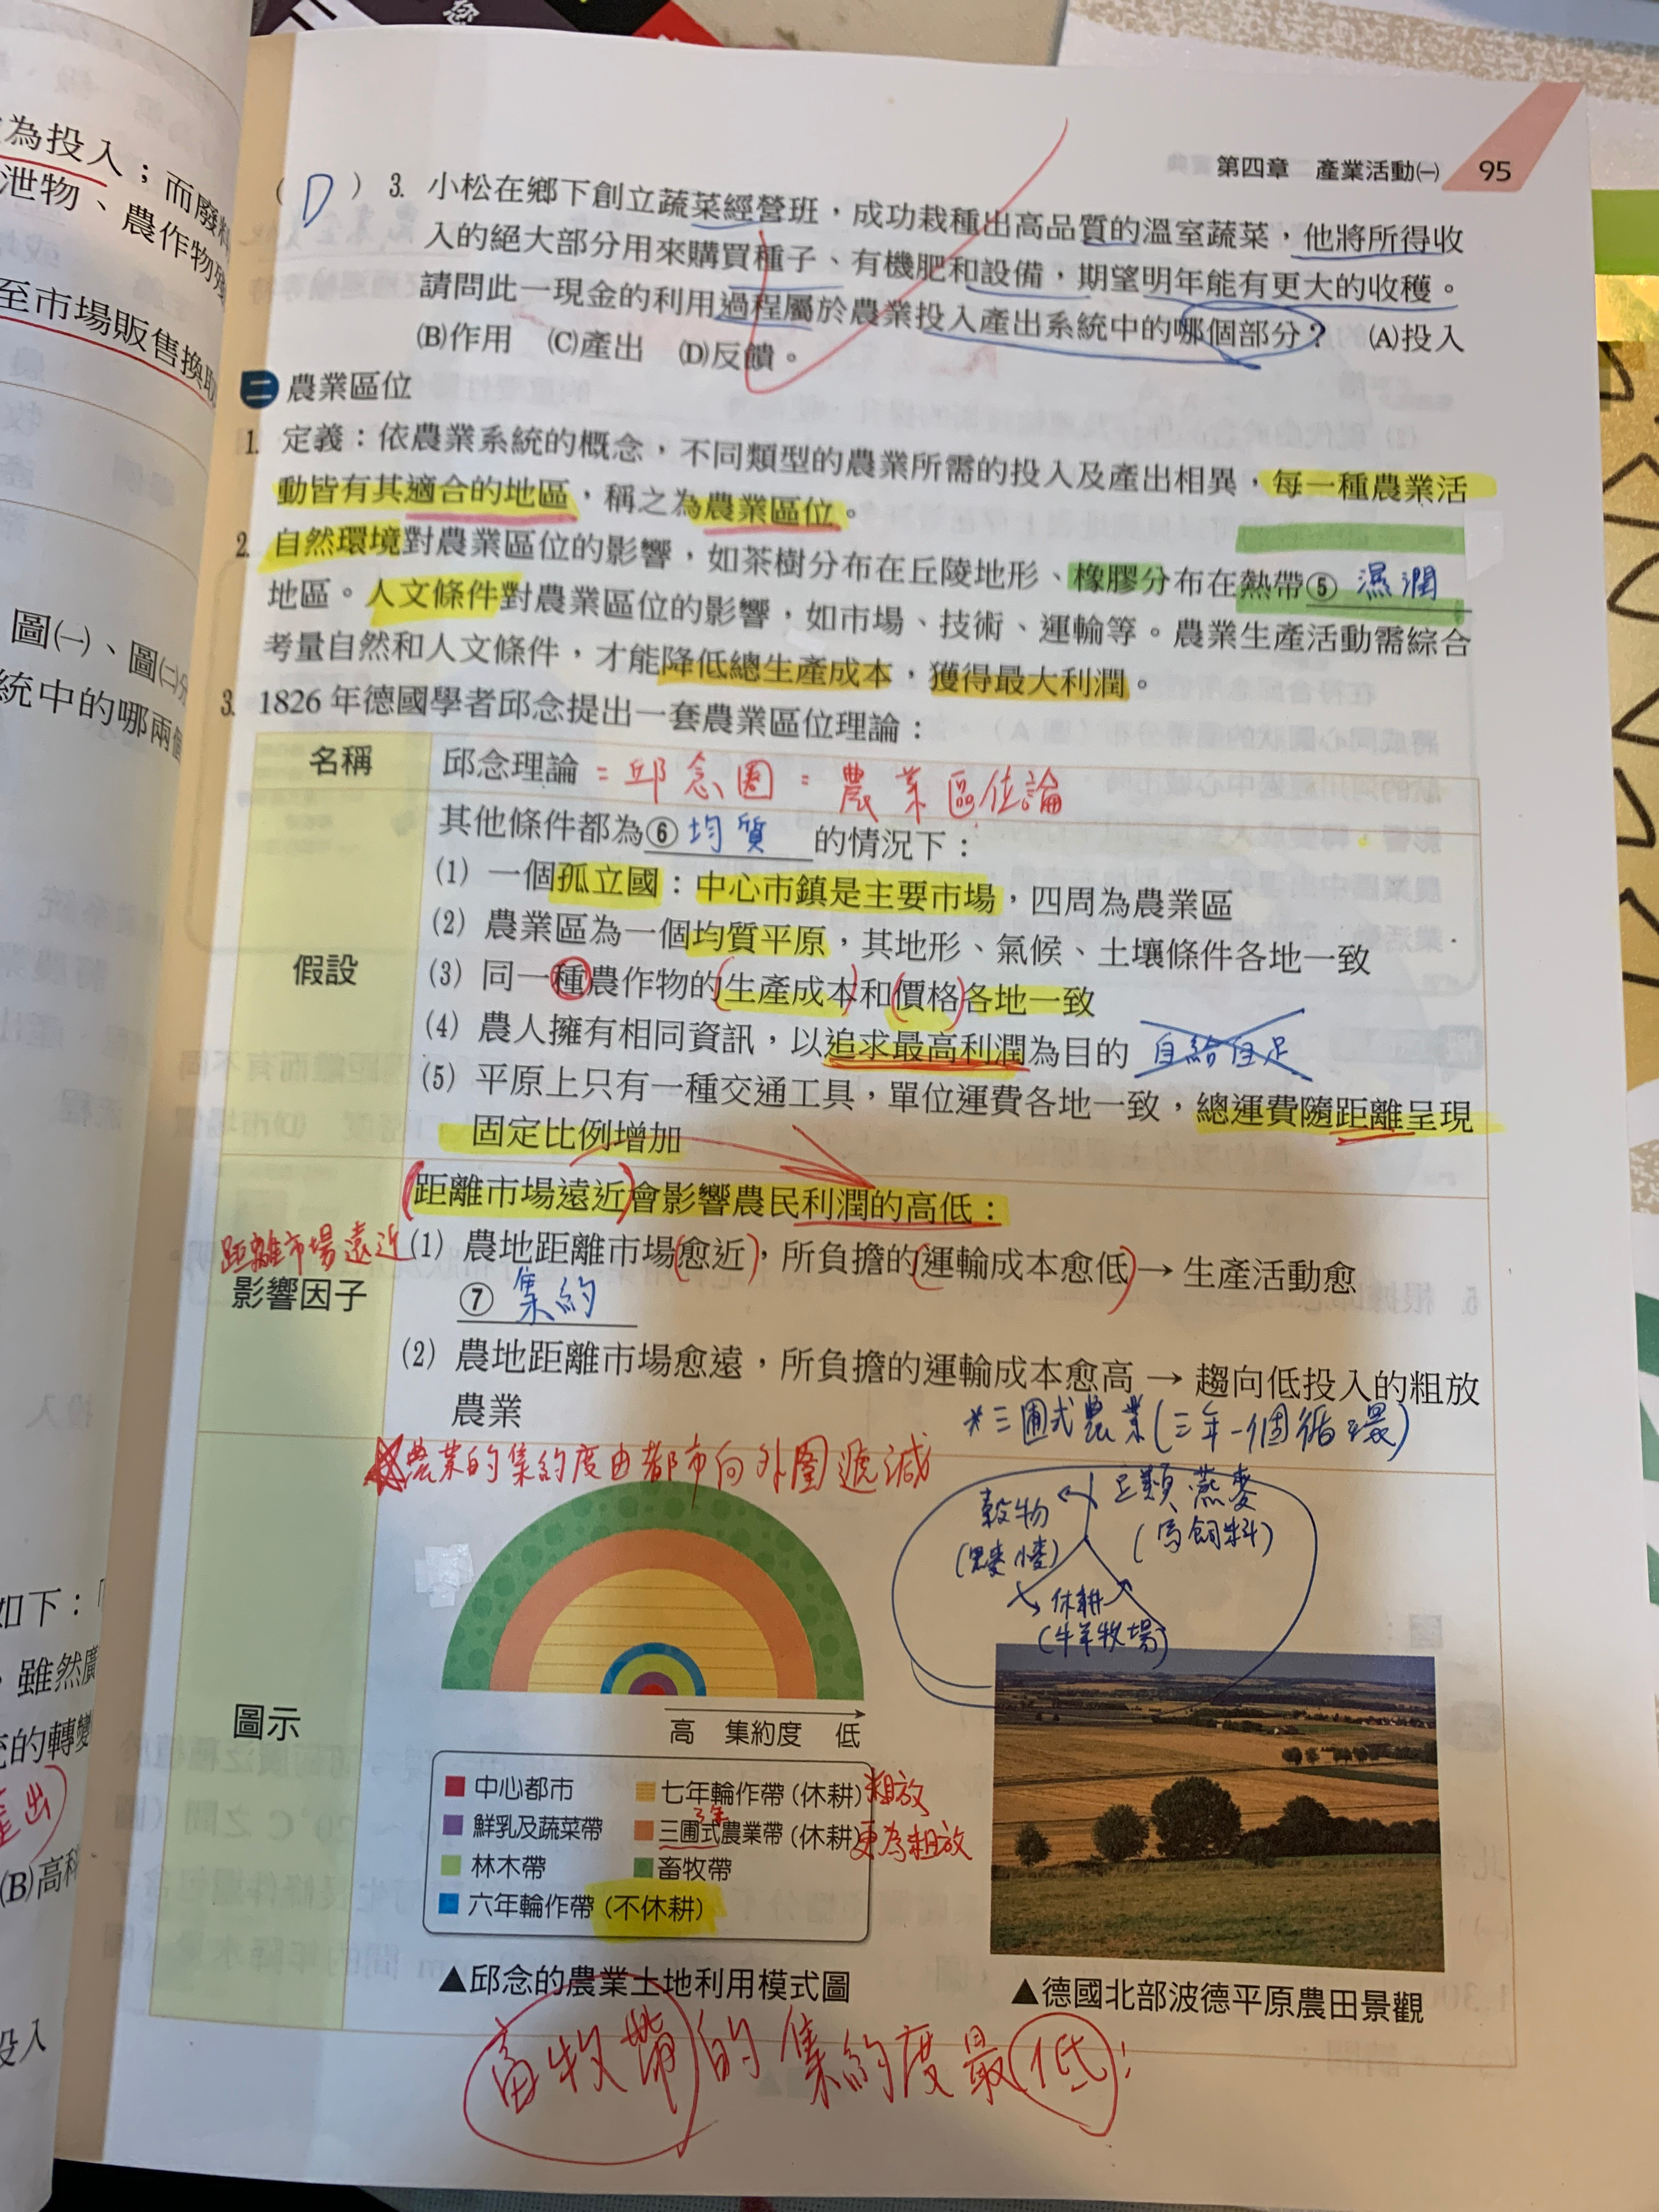 您
為投入；而廢料
泄物、農作物殘
至市場販售換取
圖㈠、圖㈡分
統中的哪兩個
如下：「
，雖然廣
的轉變
產出
(B)高科
投入
第四章　產業活動㈠　95
( D ) 3. 小松在鄉下創立蔬菜經營班，成功栽種出高品質的溫室蔬菜，他將所得收
入的絕大部分用來購買種子、有機肥和設備，期望明年能有更大的收穫。
請問此一現金的利用過程屬於農業投入產出系統中的哪個部分？　(A)投入
(B)作用　(C)產出　(D)反饋。
二 農業區位
1. 定義：依農業系統的概念，不同類型的農業所需的投入及產出相異，每一種農業活
動皆有其適合的地區，稱之為農業區位。
2. 自然環境對農業區位的影響，如茶樹分布在丘陵地形、橡膠分布在熱帶⑤ 濕潤
地區。人文條件對農業區位的影響，如市場、技術、運輸等。農業生產活動需綜合
考量自然和人文條件，才能降低總生產成本，獲得最大利潤。
3. 1826 年德國學者邱念提出一套農業區位理論：
名稱　邱念理論 = 邱念圈 = 農業區位論
假設
其他條件都為⑥ 均質 的情況下：
(1) 一個孤立國：中心市鎮是主要市場，四周為農業區
(2) 農業區為一個均質平原，其地形、氣候、土壤條件各地一致
(3) 同一種農作物的(生產成本)和(價格)各地一致
(4) 農人擁有相同資訊，以追求最高利潤為目的 自給自足
(5) 平原上只有一種交通工具，單位運費各地一致，總運費隨距離呈現
固定比例增加
距離市場遠近
影響因子
(距離市場遠近)會影響農民利潤的高低：
(1) 農地距離市場(愈近)，所負擔的(運輸成本愈低)→ 生產活動愈
⑦ 集約
(2) 農地距離市場愈遠，所負擔的運輸成本愈高 → 趨向低投入的粗放
農業
*三圃式農業(三年一個循環)
農業的集約度由都市向外圍遞減
圖示
穀物
豆類 燕麥
(馬飼料)
(黑麥 小麥)
休耕
(牛羊牧場)
高　集約度　低
中心都市
七年輪作帶 (休耕) 粗放
鮮乳及蔬菜帶
3年
三圃式農業帶 (休耕) 更為粗放
林木帶
畜牧帶
六年輪作帶 (不休耕)
▲邱念的農業土地利用模式圖
▲德國北部波德平原農田景觀
畜牧帶的集約度最低!